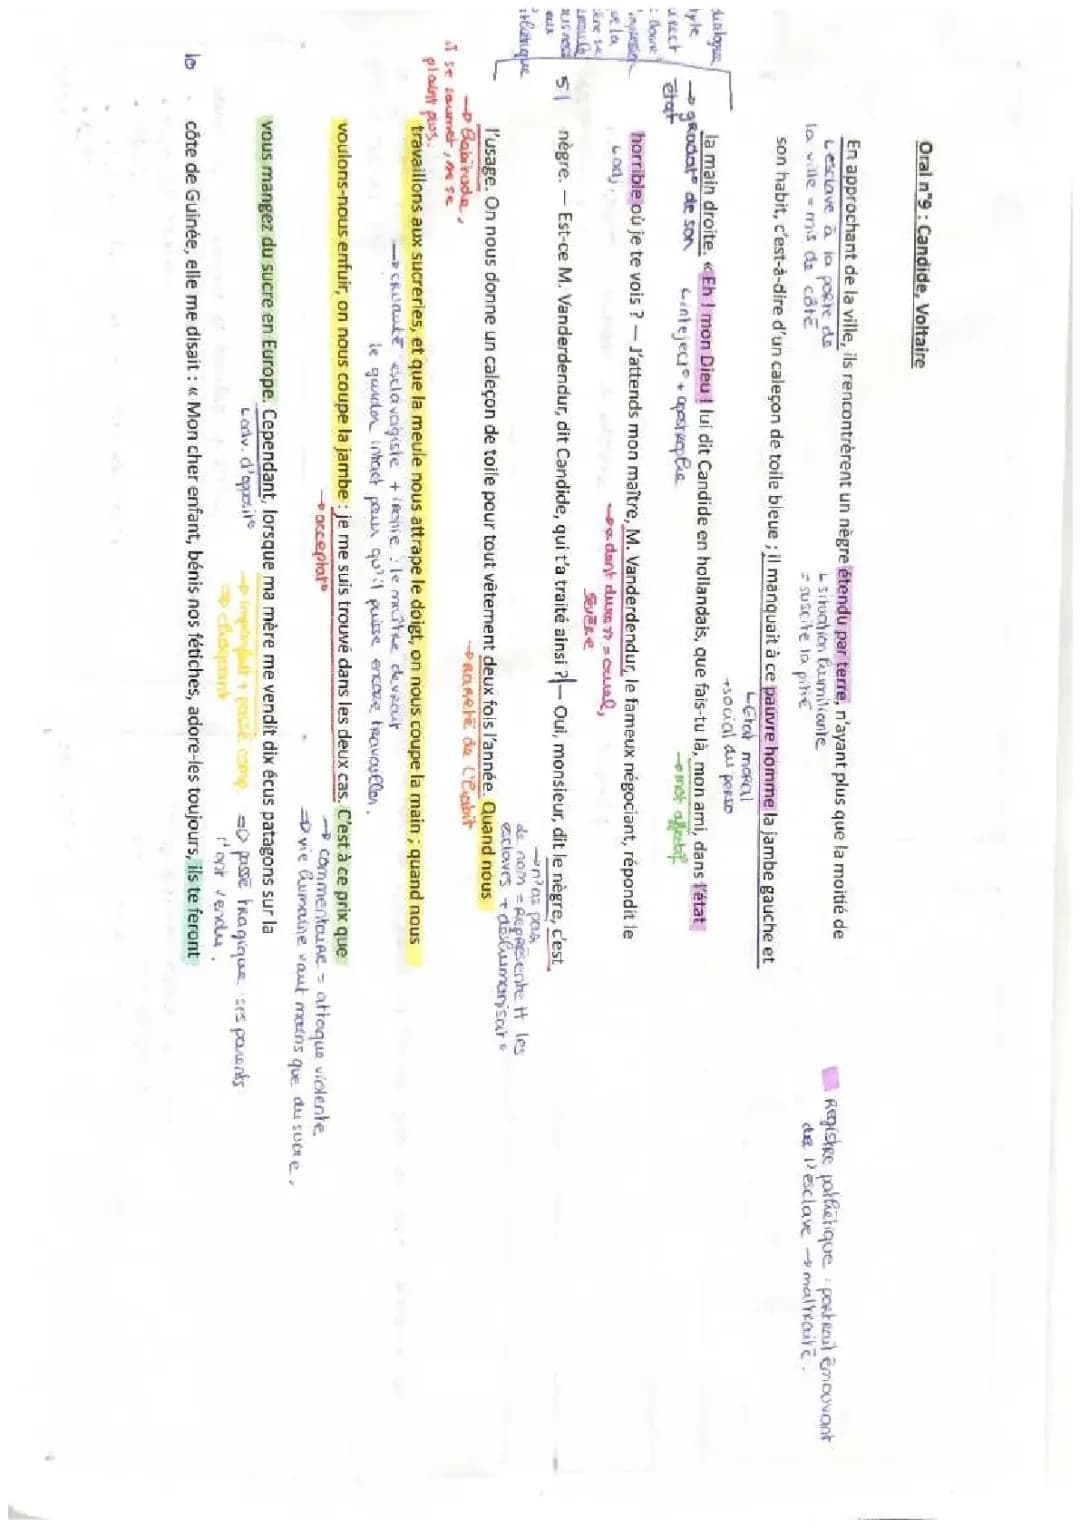 Oral n°9 : Candide, Voltaire
En approchant de la ville, ils rencontrèrent un nègre étendu par terre, n'ayant plus que la moitié de
L esclave à la porte de la ville = mis de côté
L situation humiliante = suscite la pitié
Registre pathétique : portrait émouvant de l'esclave → maltraité.
son habit, c'est-à-dire d'un caleçon de toile bleue ; il manquait à ce pauvre homme la jambe gauche et
L État moral + social du perso
la main droite. « Eh ! mon Dieu ! lui dit Candide en hollandais, que fais-tu là, mon ami, dans l'état
→ gradat° de son état
L interject° + apostrophe
→ mot affectif
horrible où je te vois ? — J'attends mon maître, M. Vanderdendur, le fameux négociant, répondit le
L adj.
→ dent dure = cruel, sévère
5 nègre. — Est-ce M. Vanderdendur, dit Candide, qui t'a traité ainsi ? — Oui, monsieur, dit le nègre, c'est
→ n'as pas de nom = Représente tt les esclaves + déshumanisat°
dialogue
style
direct
: donne
l'impression
de la
pathétique
l'usage. On nous donne un caleçon de toile pour tout vêtement deux fois l'année. Quand nous
→ habitude, il se soumet, ne se plaint plus.
→ rareté de l'habit
travaillons aux sucreries, et que la meule nous attrape le doigt, on nous coupe la main ; quand nous
→ cruauté esclavagiste + ironie : le maître devrait le garder intact pour qu'il puisse encore travailler.
voulons-nous enfuir, on nous coupe la jambe : je me suis trouvé dans les deux cas. C'est à ce prix que
→ acceptat°
→ commentaire = attaque violente
⇒ vie humaine vaut moins que du sucre.
vous mangez du sucre en Europe. Cependant, lorsque ma mère me vendit dix écus patagons sur la
L adv. d'opposit°
→ imparfait + passé comp
⇒ choquant
⇒ passé tragique : ses parents l'ont vendu.
10 côte de Guinée, elle me disait : « Mon cher enfant, bénis nos fétiches, adore-les toujours, ils te feront